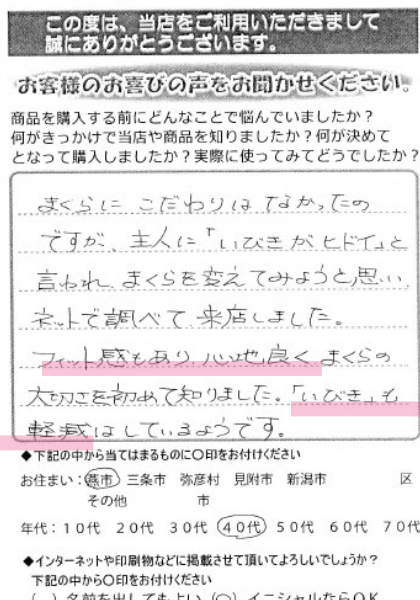 この度は、当店をご利用いただきまして
誠にありがとうございます。
お客様のお喜びの声をお聞かせください。
商品を購入する前にどんなことで悩んでいましたか?
何がきっかけで当店や商品を知りましたか?何が決めて
となって購入しましたか?実際に使ってみてどうでしたか?
まくらに こだわりは なかったの
ですが、主人に「いびきがヒドイ」と
言われ、まくらを変えてみようと思い、
ネットで調べて、来店しました。
フィット感もあり 心地良く まくらの
大切さを初めて知りました。「いびき」も
軽減はしているようです。
◆下記の中から当てはまるものに○印をお付けください
お住まい:燕市 三条市 弥彦村 見附市 新潟市 区
その他 市
年代:10代 20代 30代 40代 50代 60代 70代
◆インターネットや印刷物などに掲載させて頂いてよろしいでしょうか?
下記の中から○印をお付けください
( )名前を出してもよい (○)イニシャルならOK